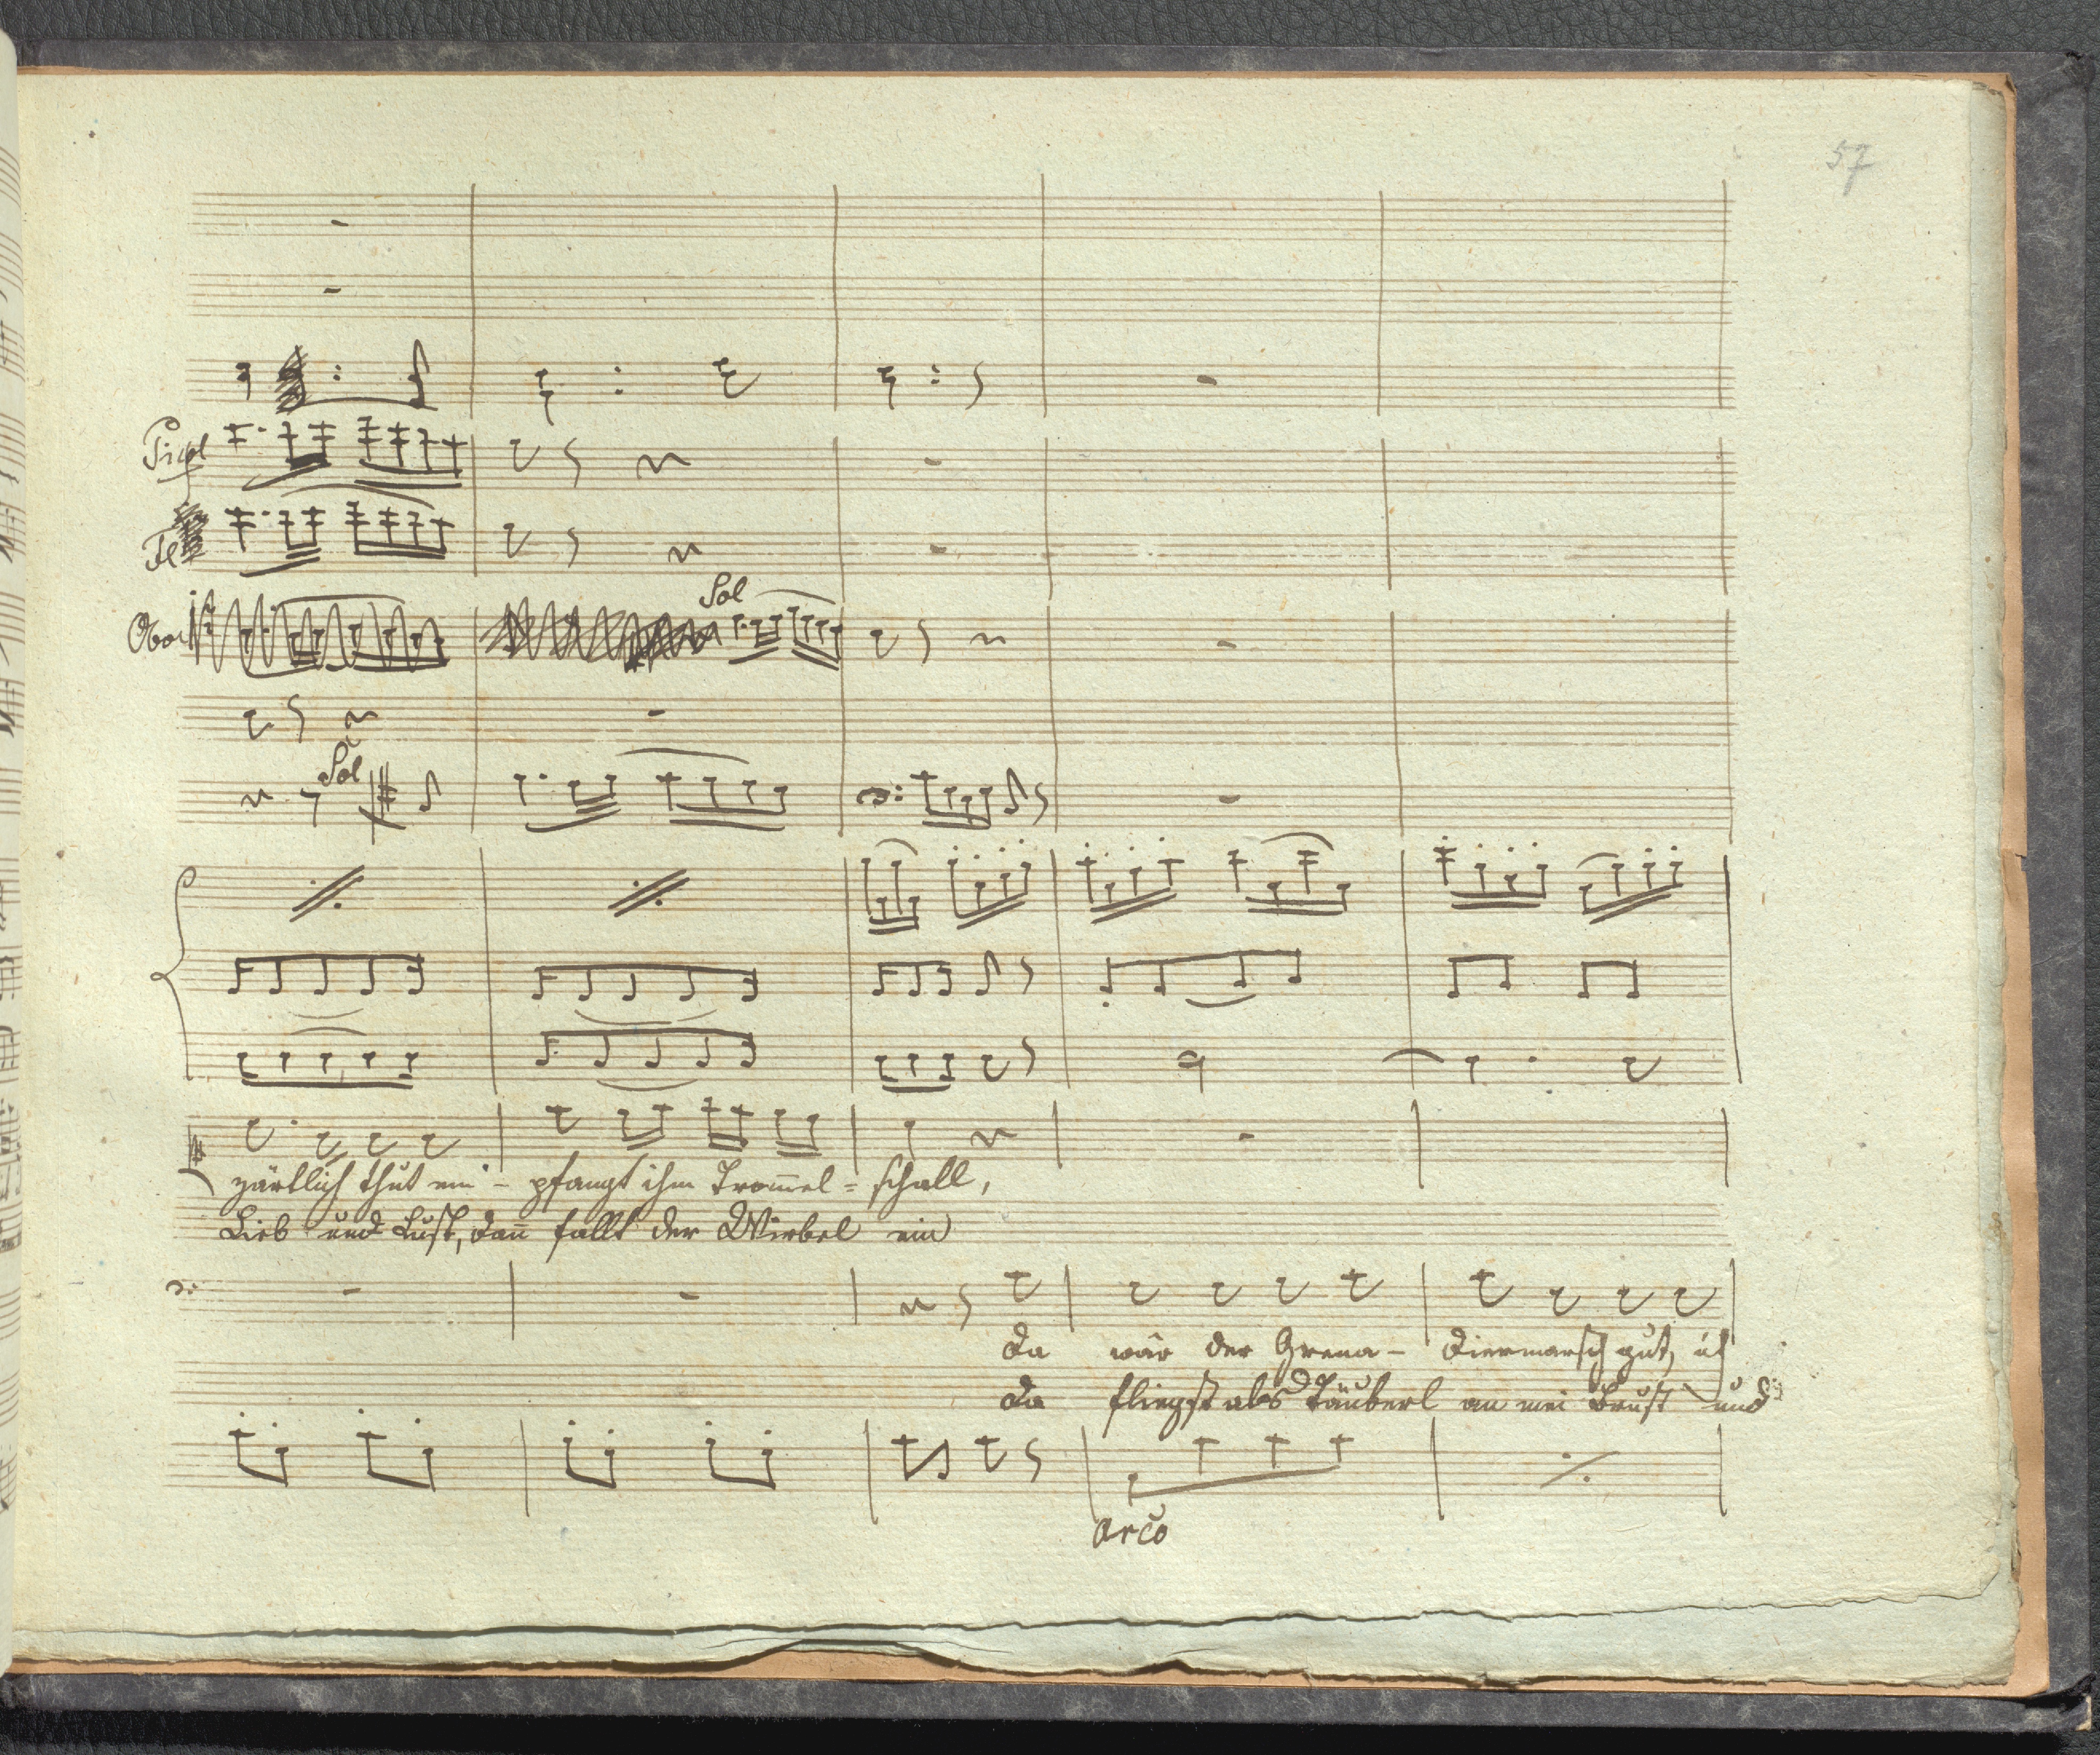 57
Picol
Fl
Sol
Oboi
Sol
zärtlich thut em- pfangt ihm Trom̄el= schall,
Lieb und Lust, dan̄ fallt der Wirbel ein
Da wär der Grena- diermarsch gut, ich
Da fliegst als Täuberl an mei Brust und
arco